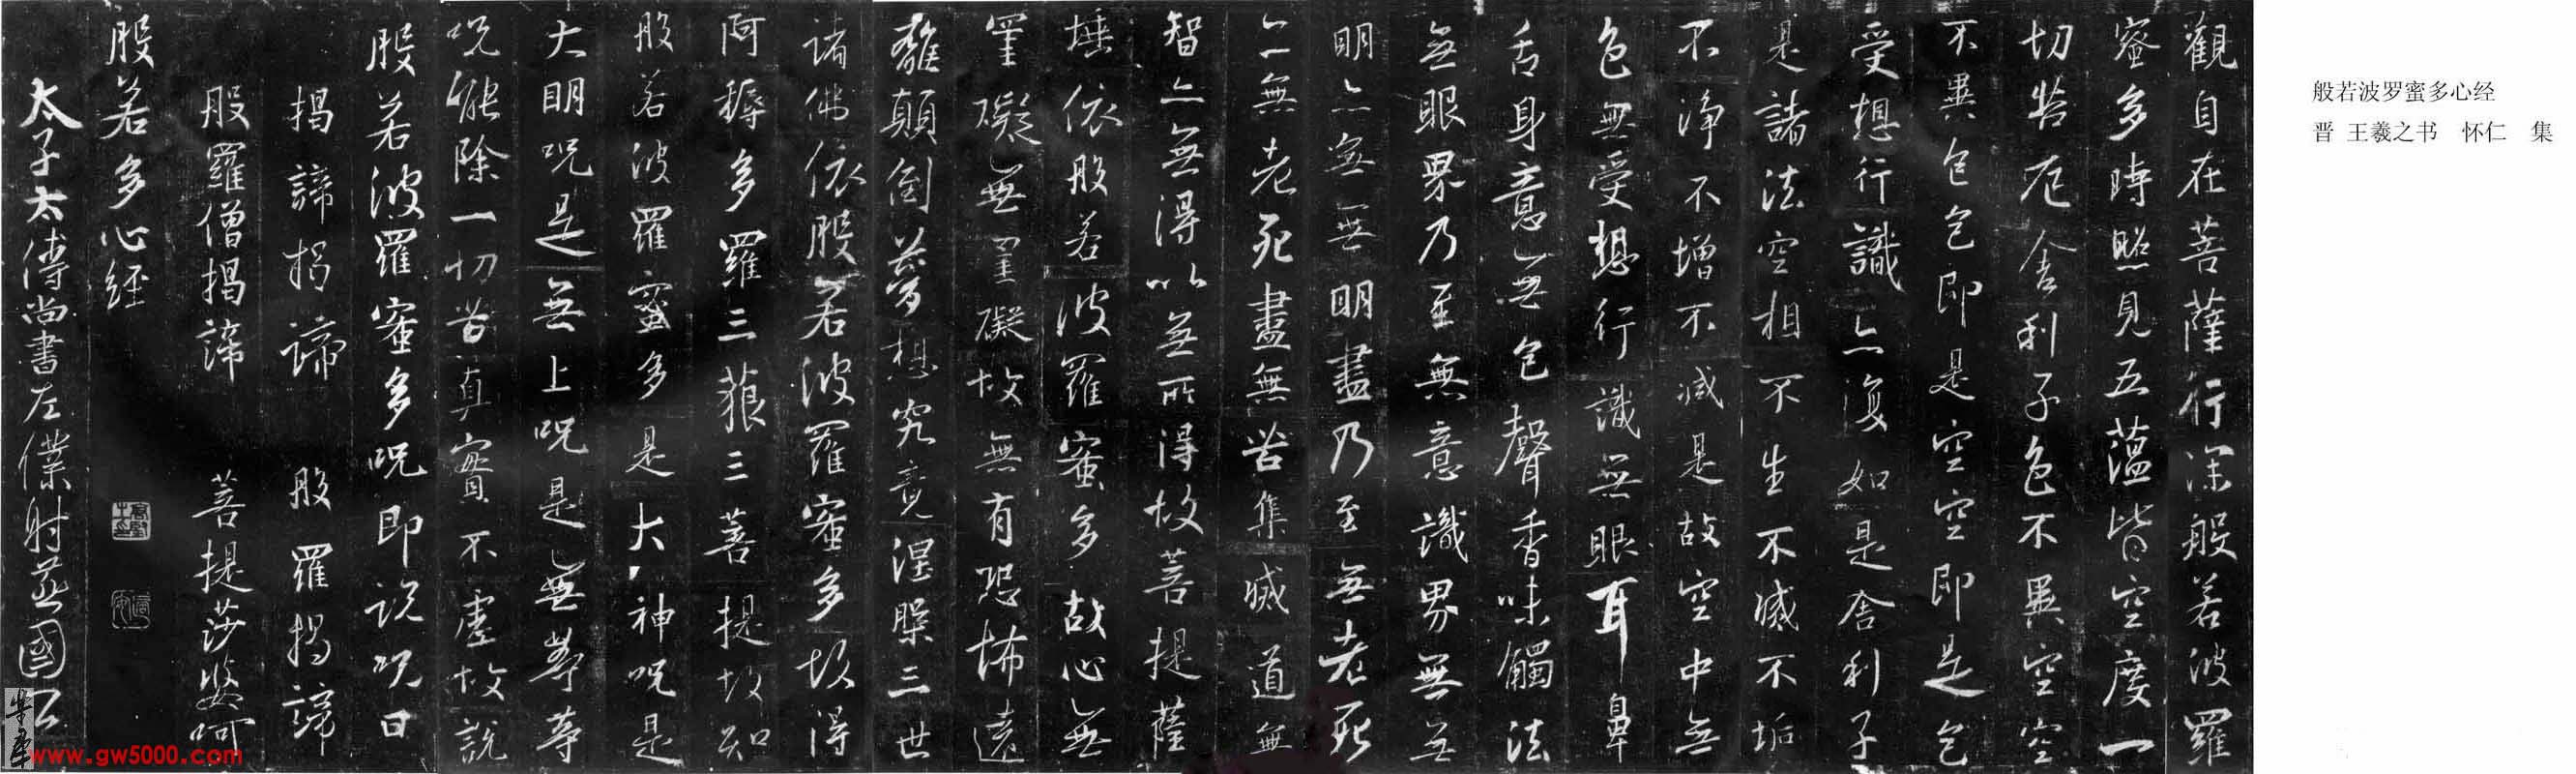 般若波罗蜜多心经
晋 王羲之书 怀仁 集
觀自在菩薩行深般若波羅
蜜多時照見五蘊皆空度一
切苦厄舍利子色不異空空
不異色色即是空空即是色
受想行識亦復如是舍利子
是諸法空相不生不滅不垢
不淨不增不減是故空中無
色無受想行識無眼耳鼻
舌身意無色聲香味觸法
無眼界乃至無意識界無無
明亦無無明盡乃至無老死
亦無老死盡無苦集滅道無
智亦無得以無所得故菩提薩
埵依般若波羅蜜多故心無
罣礙無罣礙故無有恐怖遠
離顛倒夢想究竟涅槃三世
諸佛依般若波羅蜜多故得
阿耨多羅三藐三菩提故知
般若波羅蜜多是大神呪是
大明呪是無上呪是無等等
呪能除一切苦真實不虛故說
般若波羅蜜多呪即說呪曰
揭諦揭諦 般羅揭諦
般羅僧揭諦 菩提莎婆呵
般若多心經
太子太傅尚書左僕射燕國公
www.gw5000.com